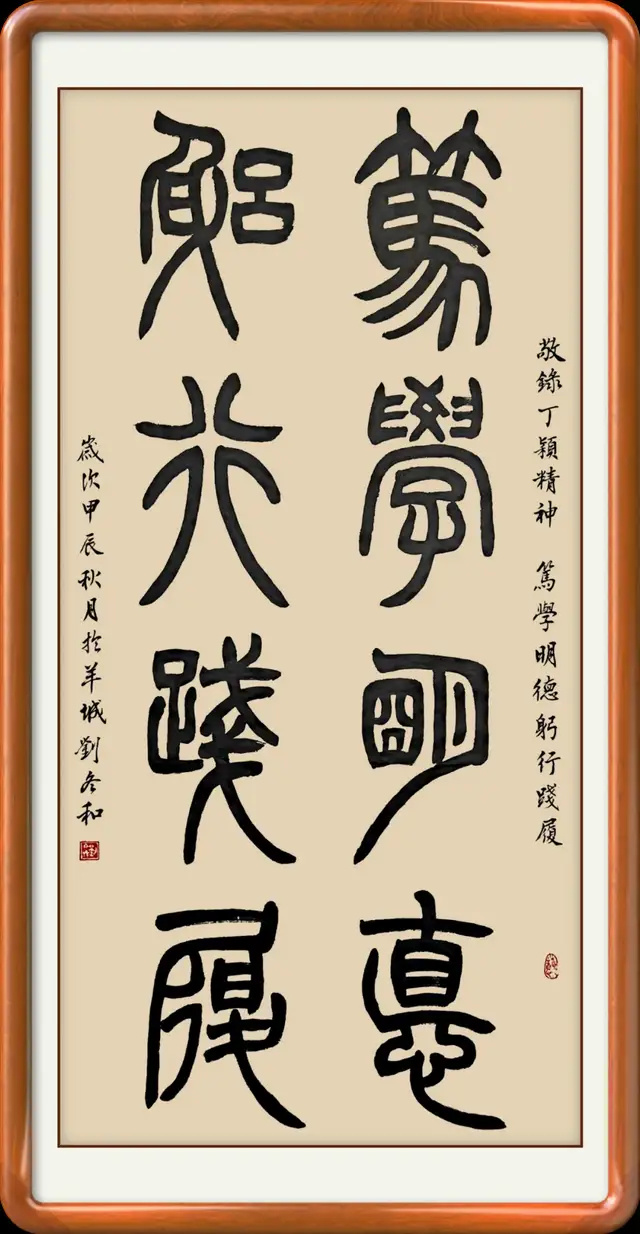 敬錄丁穎精神 篤學明德躬行踐履
篤學朙悳
躳行踐履
歲次甲辰秋月扵羊城劉冬和